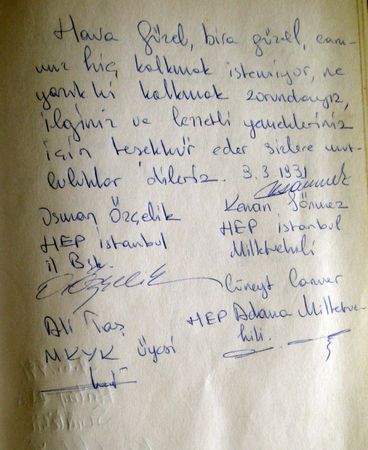 Hava güzel, bira güzel, canı-
mız hiç kalkmak istemiyor, ne
yazık ki kalkmak zorundayız,
ilginiz ve lezzetli yemekleriniz
için teşekkür eder sizlere mut-
luluklar dileriz. 3.3.1991
Osman Özçelik
HEP istanbul
il Bşk.
Kenan Sönmez
HEP istanbul
Milletvekili
Cüneyt Canver
HEP Adana Milletve-
kili.
Ali Taş
MKYK Üyesi